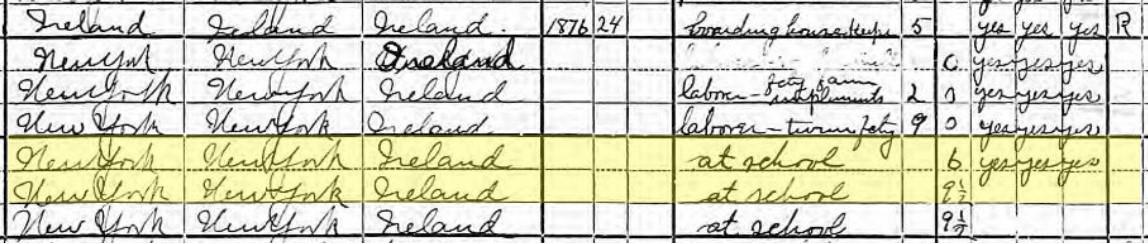 Ireland Ireland Ireland. 1876 24 boarding house keeper 5 yes yes yes R
New York New York Ireland 0 yes yes yes
New York New York Ireland laborer - fcty farm implements 2 0 yes yes yes
New York New York Ireland laborer - twine fcty 9 0 yes yes yes
New York New York Ireland at school 6 yes yes yes
New York New York Ireland at school 9½
New York New York Ireland at school 9½